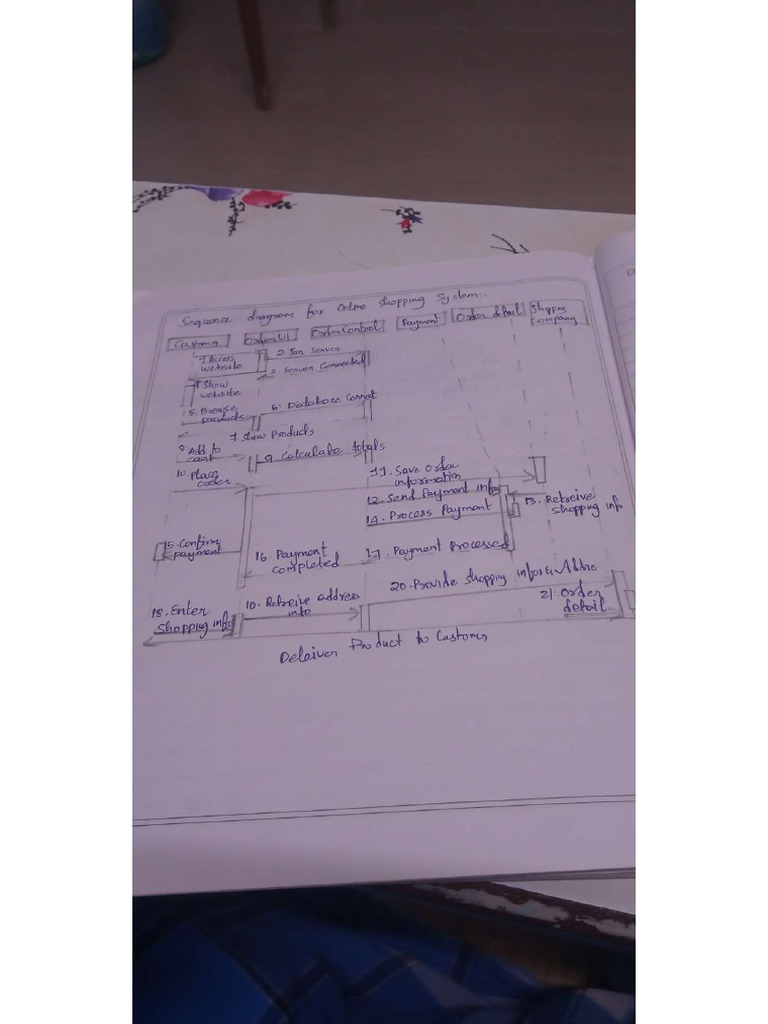 Sequence diagram for Online shopping System:-
Customer OrderUI OrderControl Payment Order detail Shyping company
1. Access website
2. Server
3. Server Connected
4. Show website
5. Browse products
6. Database Connect
7. Show Products
8. Add to cart
9. Calculate totals
10. Place order
11. Save Order information
12. Send Payment info
13. Retreive shopping info
14. Process Payment
15. Confirm payment
16. Payment completed
17. Payment Processed
18. Enter Shopping info
10. Retreive address info
20. Provide shopping info &
21. Order detail
Product to Customer